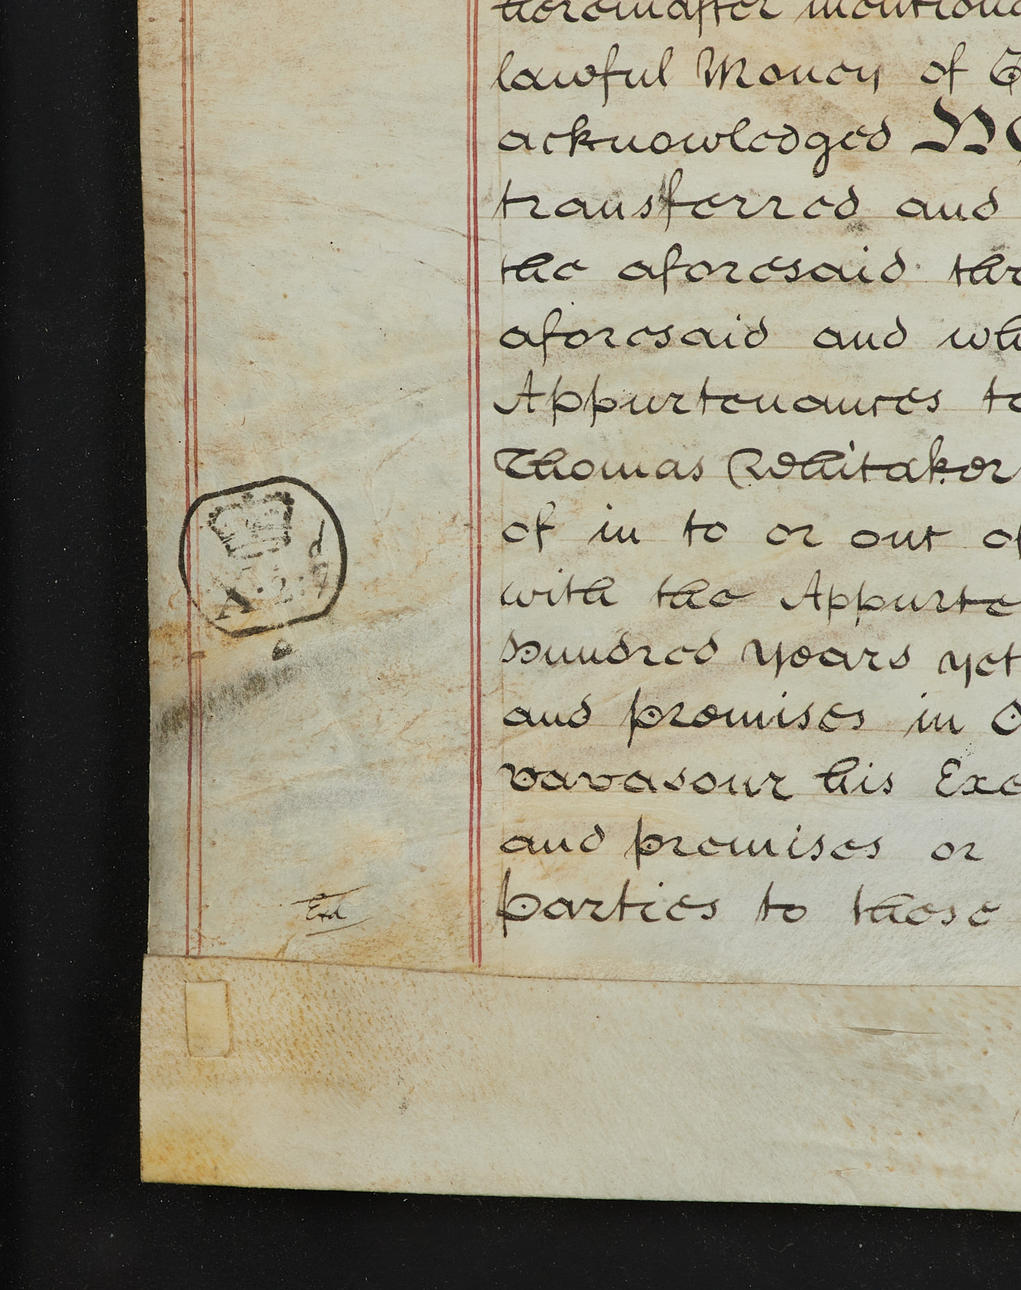 hereinafter mention
lawful Money of G
acknowledged
transferred and
the aforesaid thr
aforesaid and wh
Appurtenances to
Thomas Whitaker
of in to or out of
with the Appurte
hundred years yet
and premises in
Vavasour his Exe
and premises or
Exd
parties to these